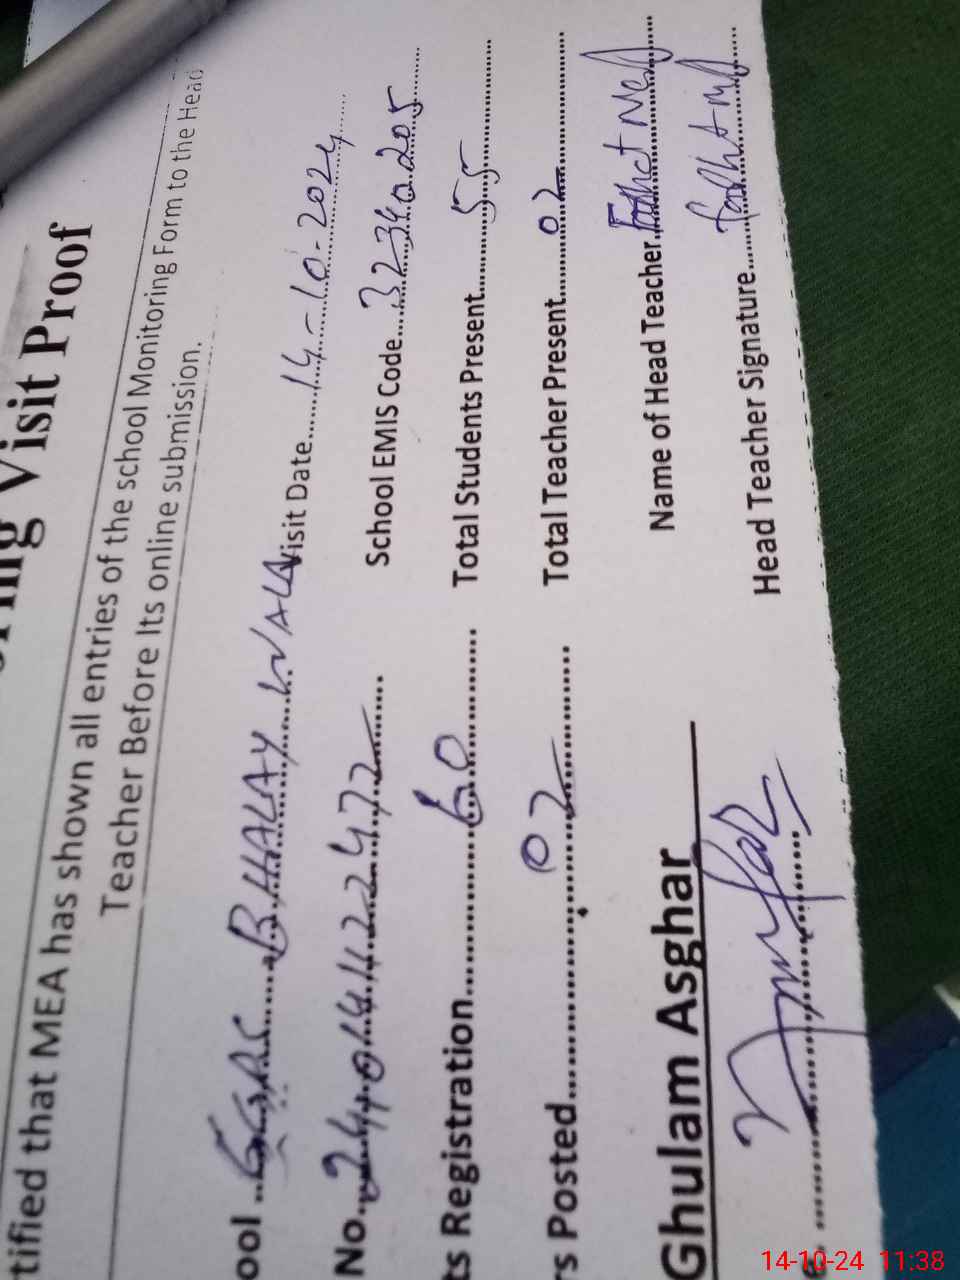 ring Visit Proof
tified that MEA has shown all entries of the school Monitoring Form to the Head
Teacher Before Its online submission.
ool.......... BHALAY WALA Visit Date......14-10-2024......
No................. School EMIS Code....32340205.......
ts Registration............60............ Total Students Present.........55............
rs Posted............02............ Total Teacher Present.........02............
Ghulam Asghar Name of Head Teacher................
Head Teacher Signature................
14-10-24 11:38